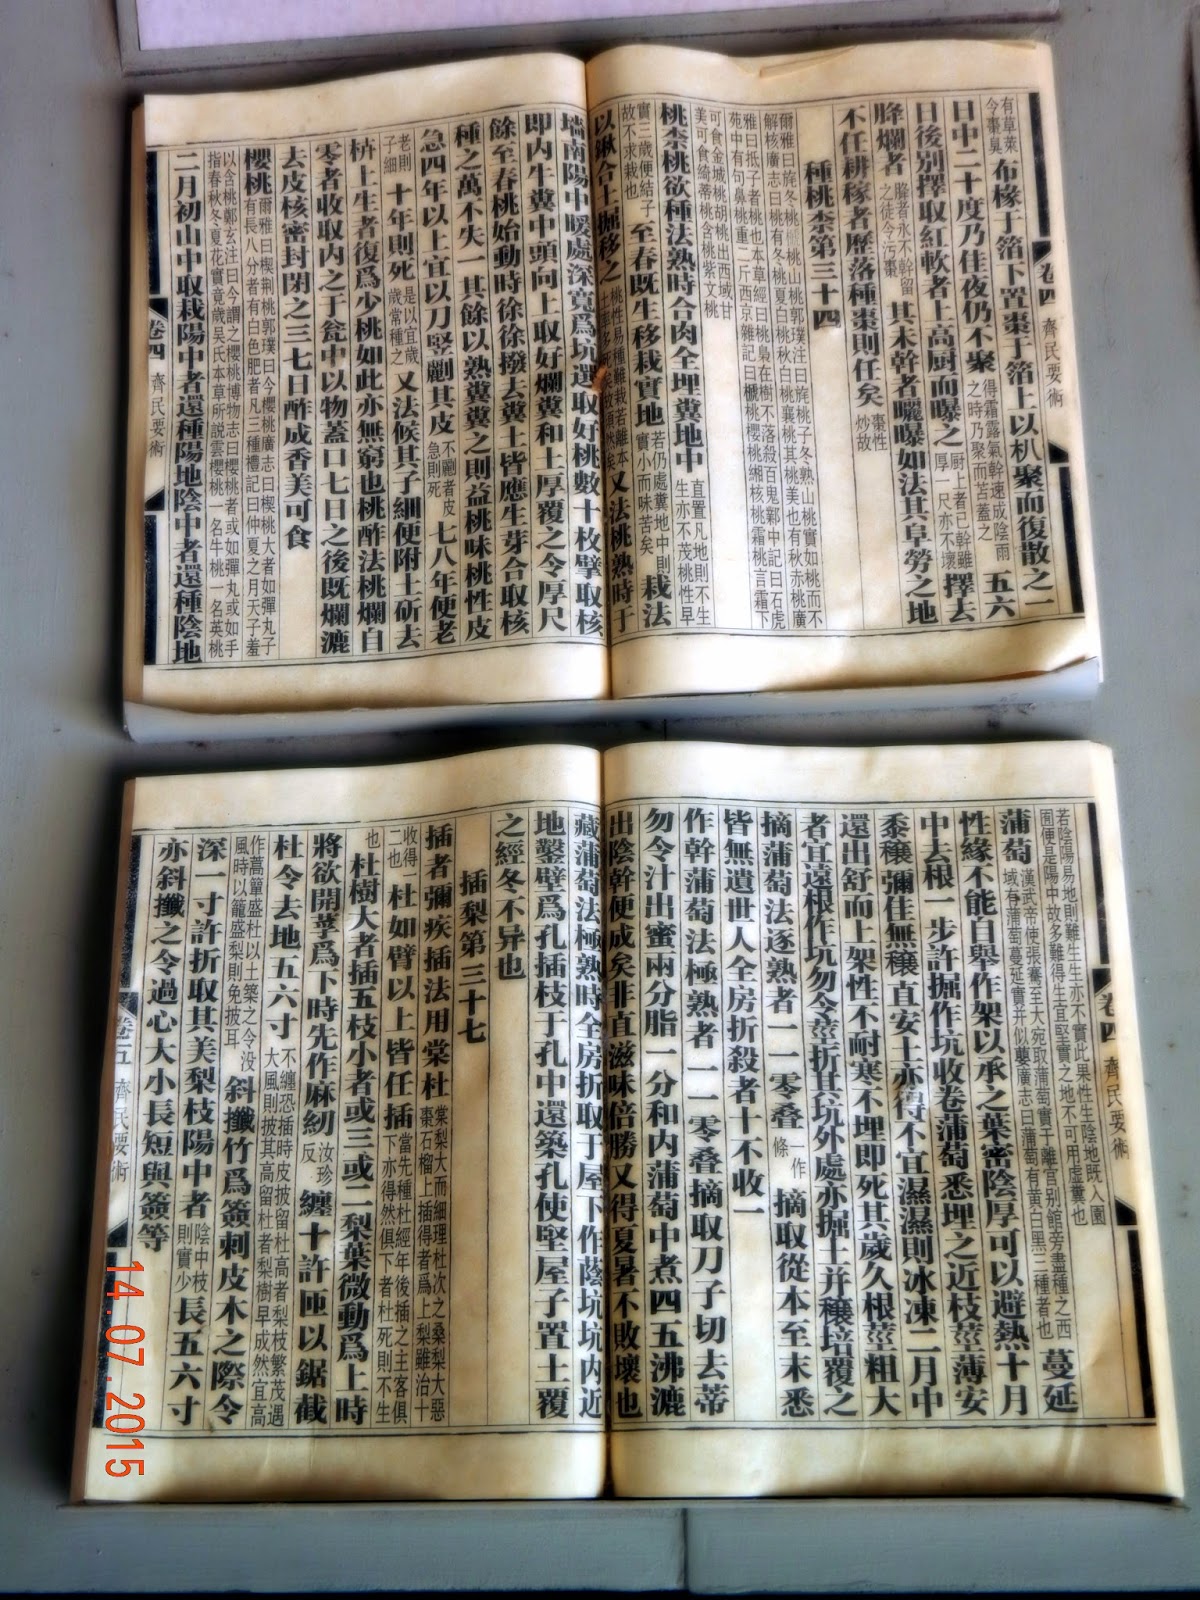 有草萊
令棗臭
布椽于箔下置棗于箔上以朳聚而復散之一
日中二十度乃佳夜仍不聚
得霜露氣幹速成陰雨
之時乃聚而苫蓋之
五六
日後別擇取紅軟者上高厨而曝之
厨上者已幹雖
厚一尺亦不壞
擇去
胮爛者
胮者永不幹留
之徒令污棗
其未幹者曬曝如法其阜勞之地
不任耕稼者歷落種棗則任矣
棗性
炒故
種桃柰第三十四
爾雅曰旄冬桃
桃山桃郭璞注曰旄桃子冬熟山桃實如桃而不
解核廣志曰桃有冬桃夏白桃秋白桃襄桃其桃美也有秋赤桃廣
雅曰抵子者桃也本草經曰桃梟在樹不落殺百鬼鄴中記曰石虎
苑中有句鼻桃重二斤西京雜記曰榹桃櫻桃緗核桃霜桃言霜下
可食金城桃胡桃出西域甘
美可食綺蒂桃含桃紫文桃
桃柰桃欲種法熟時合肉全埋糞地中
直置凡地則不生
生亦不茂桃性早
實三歲便結子
故不求栽也
至春既生移栽實地
若仍處糞地中則
實小而味苦矣
栽法
以鍬合土掘移之
桃性易種難栽若離本
土率多死矣故須然矣
又法桃熟時于
墻南陽中暖處深寬爲坑選取好桃數十枚擘取核
即内牛糞中頭向上取好爛糞和土厚覆之令厚尺
餘至春桃始動時徐徐撥去糞土皆應生芽合取核
種之萬不失一其餘以熟糞糞之則益桃味桃性皮
急四年以上宜以刀竪劙其皮
不劙者皮
急則死
七八年便老
老則
子細
十年則死
是以宜歲
歲常種之
又法候其子細便附土斫去
枿上生者復爲少桃如此亦無窮也桃酢法桃爛自
零者收取内之于瓮中以物蓋口七日之後既爛漉
去皮核密封閉之三七日酢成香美可食
櫻桃
爾雅曰楔荆桃郭璞曰今櫻桃廣志曰楔桃大者如彈丸子
有長八分者有白色肥者凡三種禮記曰仲夏之月天子羞
以含桃鄭玄注曰今謂之櫻桃博物志曰櫻桃者或如彈丸或如手
指春秋冬夏花實竟歲吳氏本草所説雲櫻桃一名牛桃一名英桃
二月初山中取栽陽中者還種陽地陰中者還種陰地
卷四
齊民要術
卷四
齊民要術
若陰陽易地則難生生亦不實此果性生陰地既入園
囿便是陽中故多難得生宜堅實之地不可用虛糞也
蒲萄
漢武帝使張騫至大宛取蒲萄實于離宫别館旁盡種之西
域有蒲萄蔓延實并似蘡廣志曰蒲萄有黄白黑三種者也
蔓延
性緣不能自舉作架以承之葉密陰厚可以避熱十月
中去根一步許掘作坑收卷蒲萄悉埋之近枝莖薄安
黍穰彌佳無穰直安土亦得不宜濕濕則冰凍二月中
還出舒而上架性不耐寒不埋即死其歲久根莖粗大
者宜遠根作坑勿令莖折其坑外處亦掘土并穰培覆之
摘蒲萄法逐熟者一一零叠
一作
條
摘取從本至末悉
皆無遺世人全房折殺者十不收一
作幹蒲萄法極熟者一一零叠摘取刀子切去蒂
勿令汁出蜜兩分脂一分和内蒲萄中煮四五沸漉
出陰幹便成矣非直滋味倍勝又得夏暑不敗壞也
藏蒲萄法極熟時全房折取于屋下作蔭坑坑内近
地鑿壁爲孔插枝于孔中還築孔使堅屋子置土覆
之經冬不异也
插梨第三十七
插者彌疾插法用棠杜
棠梨大而細理杜次之桑梨大惡
棗石榴上插得者爲上梨雖治十
收得一
二也
杜如臂以上皆任插
當先種杜經年後插之主客俱
下亦得然俱下者杜死則不生
也
杜樹大者插五枝小者或三或二梨葉微動爲上時
將欲開莩爲下時先作麻紉
汝珍
反
纏十許匝以鋸截
杜令去地五六寸
不纏恐插時皮披留杜高者梨枝繁茂遇
大風則披其高留杜者梨樹早成然宜高
作蒿簟盛杜以土築之令没
風時以籠盛梨則免披耳
斜攕竹爲簽刺皮木之際令
深一寸許折取其美梨枝陽中者
陰中枝
則實少
長五六寸
亦斜攕之令過心大小長短與簽等
卷四
齊民要術
卷五
齊民要術
14.07.2015